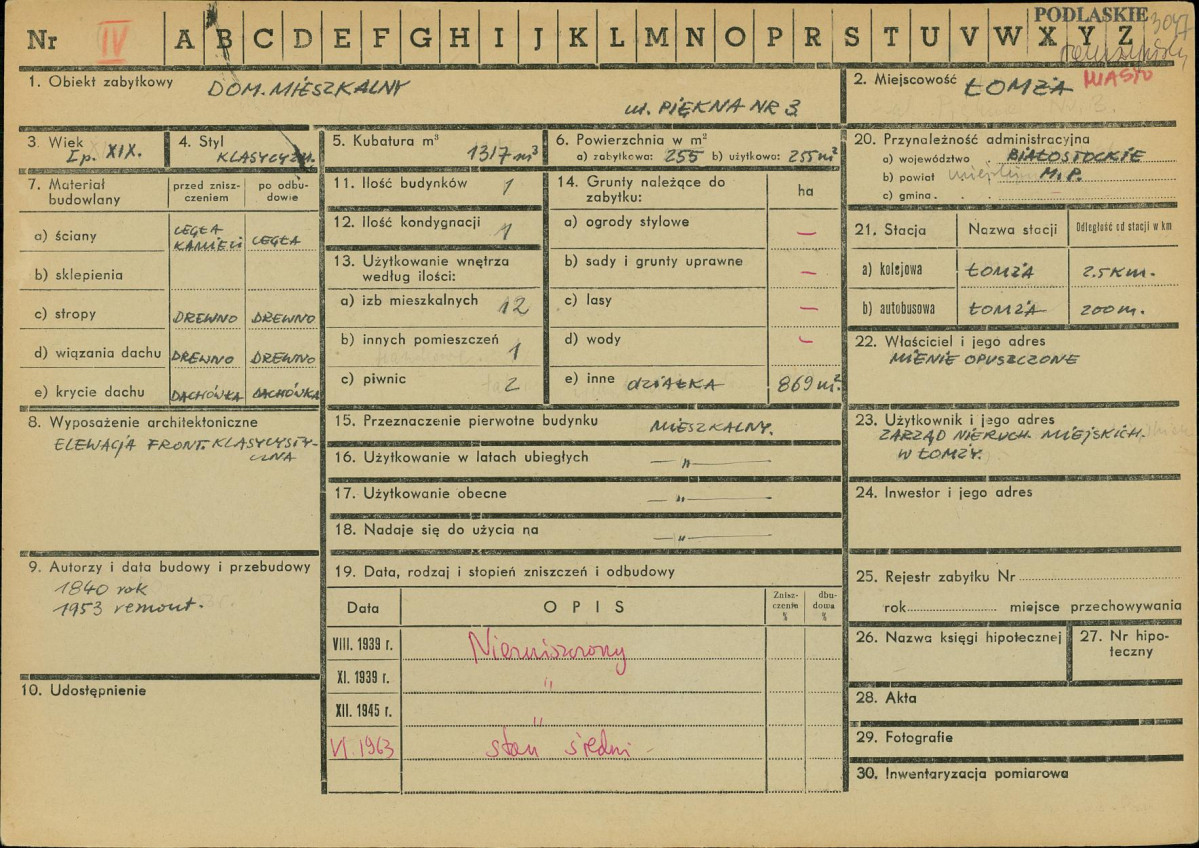 PODLASKIE
3047
Nr IV A B C D E F G H I J K L M N O P R S T U V W X Y Z
1. Obiekt zabytkowy DOM. MIESZKALNY
ul. PIĘKNA NR 3
2. Miejscowość ŁOMŻA MIASTO
3. Wiek I p. XIX.
4. Styl KLASYCYZM.
5. Kubatura m³ 1317 m³
6. Powierzchnia w m²
a) zabytkowa: 255 b) użytkowa: 255 m²
20. Przynależność administracyjna
a) województwo BIAŁOSTOCKIE
b) powiat M.P.
c) gmina
7. Materiał budowlany
przed zniszczeniem
po odbudowie
a) ściany CEGŁA KAMIEŃ CEGŁA
b) sklepienia
c) stropy DREWNO DREWNO
d) wiązania dachu DREWNO DREWNO
e) krycie dachu DACHÓWKA DACHÓWKA
11. Ilość budynków 1
12. Ilość kondygnacji 1
13. Użytkowanie wnętrza
według ilości:
a) izb mieszkalnych 12
b) innych pomieszczeń 1
c) piwnic 2
14. Grunty należące do
zabytku:
ha
a) ogrody stylowe —
b) sady i grunty uprawne —
c) lasy —
d) wody —
e) inne DZIAŁKA 869 m²
21. Stacja Nazwa stacji Odległość od stacji w km
a) kolejowa ŁOMŻA 2.5 KM.
b) autobusowa ŁOMŻA 200 m.
22. Właściciel i jego adres
MIENIE OPUSZCZONE
8. Wyposażenie architektoniczne
ELEWACJA FRONT. KLASYCYSTY-
CZNA
15. Przeznaczenie pierwotne budynku MIESZKALNY.
16. Użytkowanie w latach ubiegłych — " —
17. Użytkowanie obecne — " —
18. Nadaje się do użycia na — " —
23. Użytkownik i jego adres
ZARZĄD NIERUCH. MIEJSKICH.
W ŁOMŻY.
24. Inwestor i jego adres
9. Autorzy i data budowy i przebudowy
1840 rok
1953 remont.
10. Udostępnienie
19. Data, rodzaj i stopień zniszczeń i odbudowy
Data OPIS Zniszczenie % dbudowa %
VIII. 1939 r. Niezniszczony
XI. 1939 r. "
XII. 1945 r. "
VI. 1963 stan średni
25. Rejestr zabytku Nr
rok miejsce przechowywania
26. Nazwa księgi hipotecznej
27. Nr hipoteczny
28. Akta
29. Fotografie
30. Inwentaryzacja pomiarowa